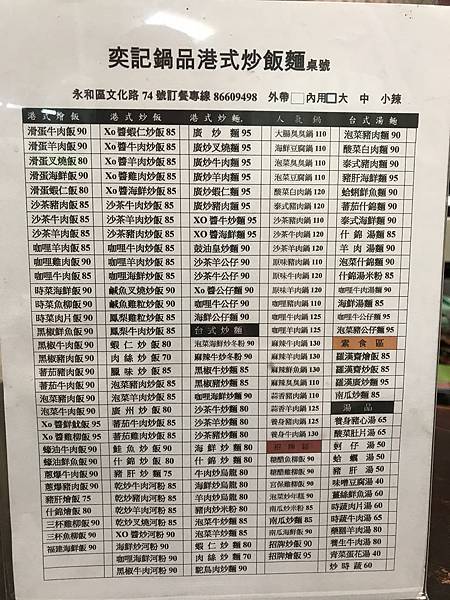 奕記鍋品港式炒飯麵桌號
永和區文化路 74 號訂餐專線 86609498 外帶 內用 大 中 小辣
港式燴飯
滑蛋牛肉飯 90
滑蛋羊肉飯 90
滑蛋叉燒飯 80
滑蛋海鮮飯 90
滑蛋蝦仁飯 80
沙茶豬肉飯 85
沙茶牛肉飯 85
沙茶羊肉飯 85
咖哩羊肉飯 85
咖哩雞肉飯 90
咖哩牛肉飯 90
時菜海鮮飯 90
時菜魚柳飯 90
時菜肉片飯 90
黑椒鮮魚飯 90
黑椒牛肉飯 90
黑椒豬肉飯 90
蕃茄豬肉飯 90
蕃茄牛肉飯 90
泡菜豬肉飯 90
泡菜牛肉飯 90
Xo 醬鮮魷飯 95
Xo 醬雞柳飯 95
蠔油牛肉飯 90
蠔油鮮魚飯 90
蔥爆牛肉飯 90
蔥爆豬肉飯 90
豬肝燴飯 75
什錦燴飯 80
三杯雞柳飯 90
三杯魚柳飯 90
福建海鮮飯 90
港式炒飯
Xo 醬蝦仁炒飯 85
Xo 醬牛肉炒飯 85
Xo 醬羊肉炒飯 85
Xo 醬雞肉炒飯 85
Xo 醬海鮮炒飯 85
沙茶牛肉炒飯 85
沙茶羊肉炒飯 85
沙茶豬肉炒飯 85
咖哩牛肉炒飯 85
咖哩羊肉炒飯 85
咖哩海鮮炒飯 85
鹹魚雞粒炒飯 85
鹹魚肉粒炒飯 85
鳳梨雞粒炒飯 85
鳳梨牛肉炒飯 85
蝦仁炒飯 80
肉絲炒飯 70
臘味炒飯 85
泡菜豬肉炒飯 85
泡菜牛肉炒飯 85
廣州炒飯 80
蕃茄牛肉炒飯 85
蕃茄雞肉炒飯 85
鮭魚炒飯 90
什錦炒飯 80
豬肝炒飯 75
乾炒牛肉河粉 85
乾炒豬肉河粉 85
乾炒叉燒河粉 85
什錦炒河粉 90
海鮮炒河粉 90
黑椒牛肉河粉 90
港式炒麵
廣炒麵 95
廣炒叉燒麵 95
廣炒牛肉麵 95
廣炒蝦仁麵 95
廣炒豬肉麵 95
XO 醬牛炒麵 95
XO 醬海鮮麵 95
鼓油皇炒麵 90
沙茶羊公仔 90
沙茶牛公仔 90
Xo 醬公仔麵 90
什錦公仔麵 90
海鮮公仔麵 90
台式炒麵
泡菜海鮮炒冬粉 90
麻辣牛炒冬粉 90
麻辣羊炒冬粉 90
沙茶羊炒麵 80
沙茶牛炒麵 80
沙茶豬炒麵 80
海鮮炒麵 80
什錦炒麵 80
牛肉炒烏龍 80
羊肉炒烏龍 80
豬肉炒米粉 80
泡菜牛炒麵 80
泡菜羊炒麵 80
蝦仁炒麵 80
肉絲炒麵 70
鴕鳥肉炒麵 90
人氣鍋
大腸臭臭鍋 110
海鮮豆腐鍋 110
泡菜臭臭鍋 110
泡菜豆腐鍋 110
酸菜白肉鍋 120
泰式豬肉鍋 120
沙茶豬肉鍋 110
沙茶牛肉鍋 120
沙茶羊肉鍋 120
原味豬肉鍋 110
原味牛肉鍋 120
原味羊肉鍋 120
咖哩豬肉鍋 110
咖哩牛肉鍋 125
咖哩羊肉鍋 125
麻辣牛肉鍋 130
麻辣羊肉鍋 130
麻辣豬肉鍋 110
麻辣臭臭鍋 110
蒜香豬肉鍋 110
蒜香羊肉鍋 125
養身豬肉鍋 120
養身牛肉鍋 130
糖醋魚柳飯 90
糖醋雞柳飯 90
宮保雞柳飯 90
泡菜炒年糕 90
南瓜炒米粉 85
南瓜炒麵 85
南瓜海鮮飯 90
招牌炒飯 90
招牌燴飯 95
台式湯麵
泡菜豬肉麵 90
酸菜白肉麵 90
泰式豬肉麵 90
豬肝海鮮麵 90
蛤蜊鮮魚麵 90
蕃茄什錦麵 90
泰式海鮮麵 90
什錦湯麵 85
羊肉湯麵 90
泡菜什錦麵 90
什錦湯米粉 85
咖哩牛肉湯麵 90
海鮮湯麵 85
咖哩牛公仔麵 90
泡菜豬公仔麵 90
素食區
羅漢齋燴飯 85
羅漢齋炒飯 85
羅漢廣炒麵 95
南瓜炒麵 85
湯品
養身豬心湯 65
酸菜肚片湯 65
蚵仔湯 50
蛤蠣湯 50
豬肝湯 50
味噌豆腐湯 40
薑絲鮮魚湯 50
時蔬肉片湯 50
時蔬牛肉湯 60
藥膳羊肉湯 80
養生牛肉湯 80
青菜蛋花湯 40
炒時蔬 60